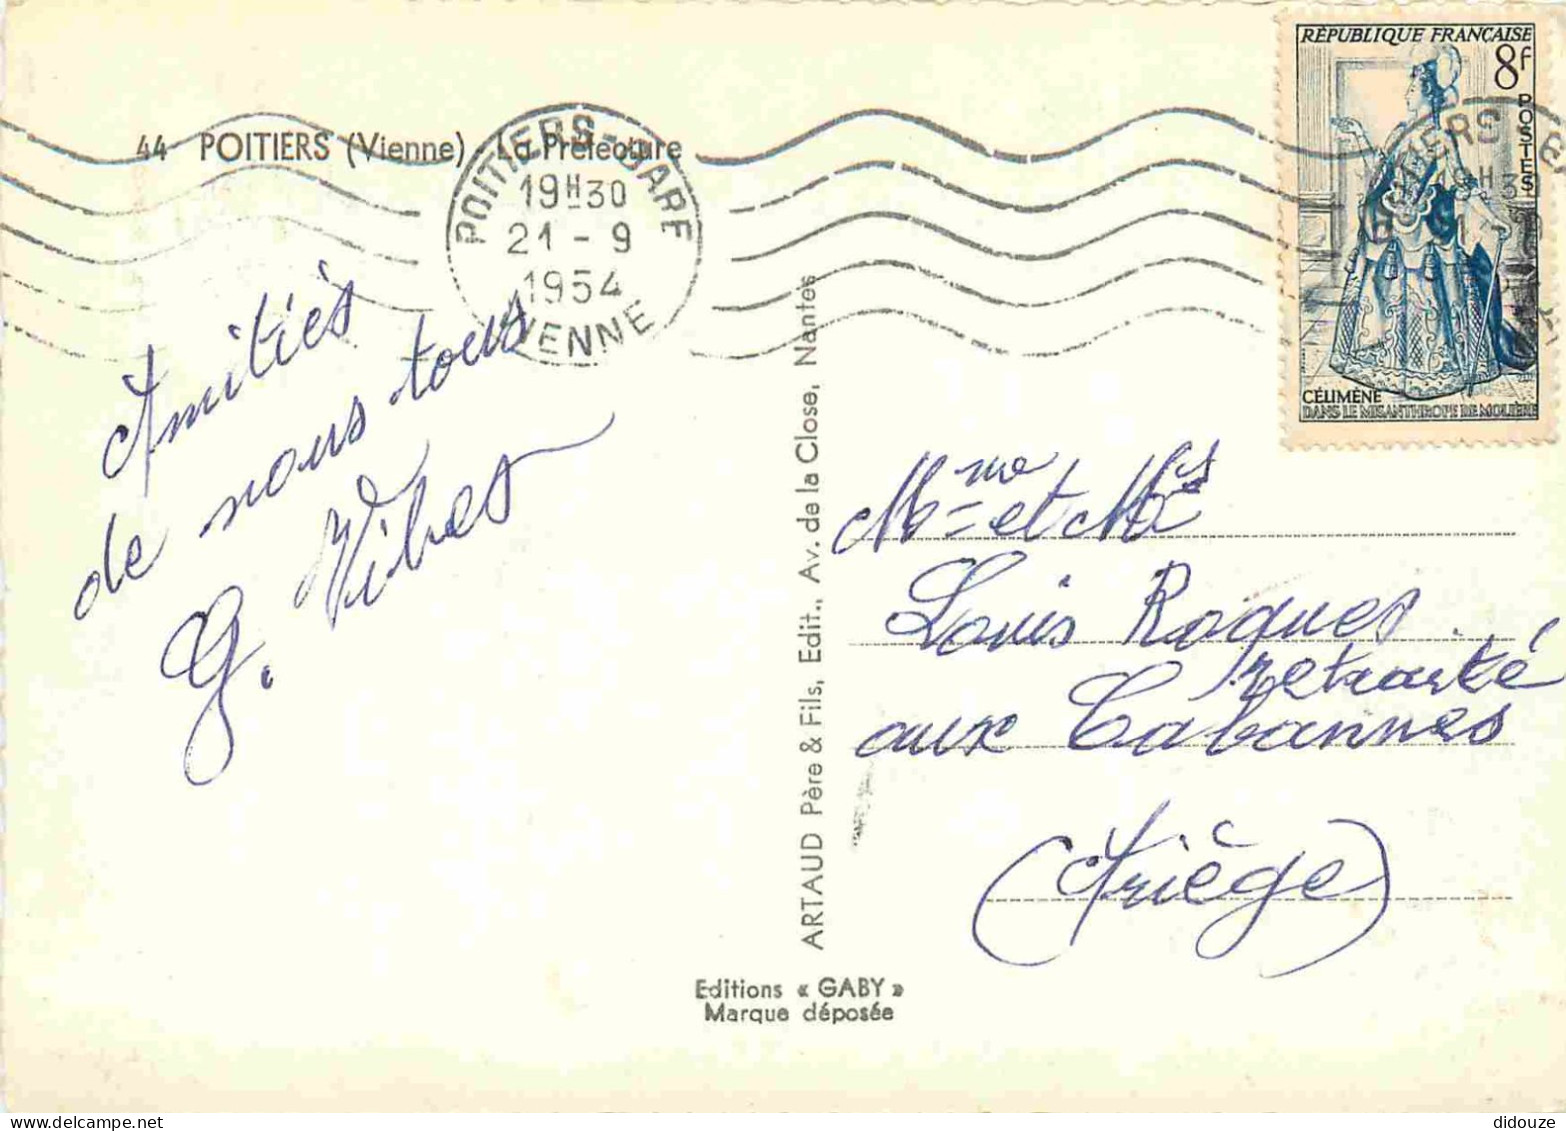 44 POITIERS (Vienne) - La Préfecture
POITIERS-GARE
19H30
21 - 9
1954
VIENNE
RÉPUBLIQUE FRANÇAISE
8f
POSTES
CÉLIMÈNE
DANS LE MISANTHROPE DE MOLIÈRE
Amitiés
de nous tous
G. Vibes
ARTAUD Père & Fils, Edit., Av. de la Close, Nantes
Mme et Mr
Louis Roques
retraité
aux Cabannes
(Ariège)
Editions « GABY »
Marque déposée
didouze